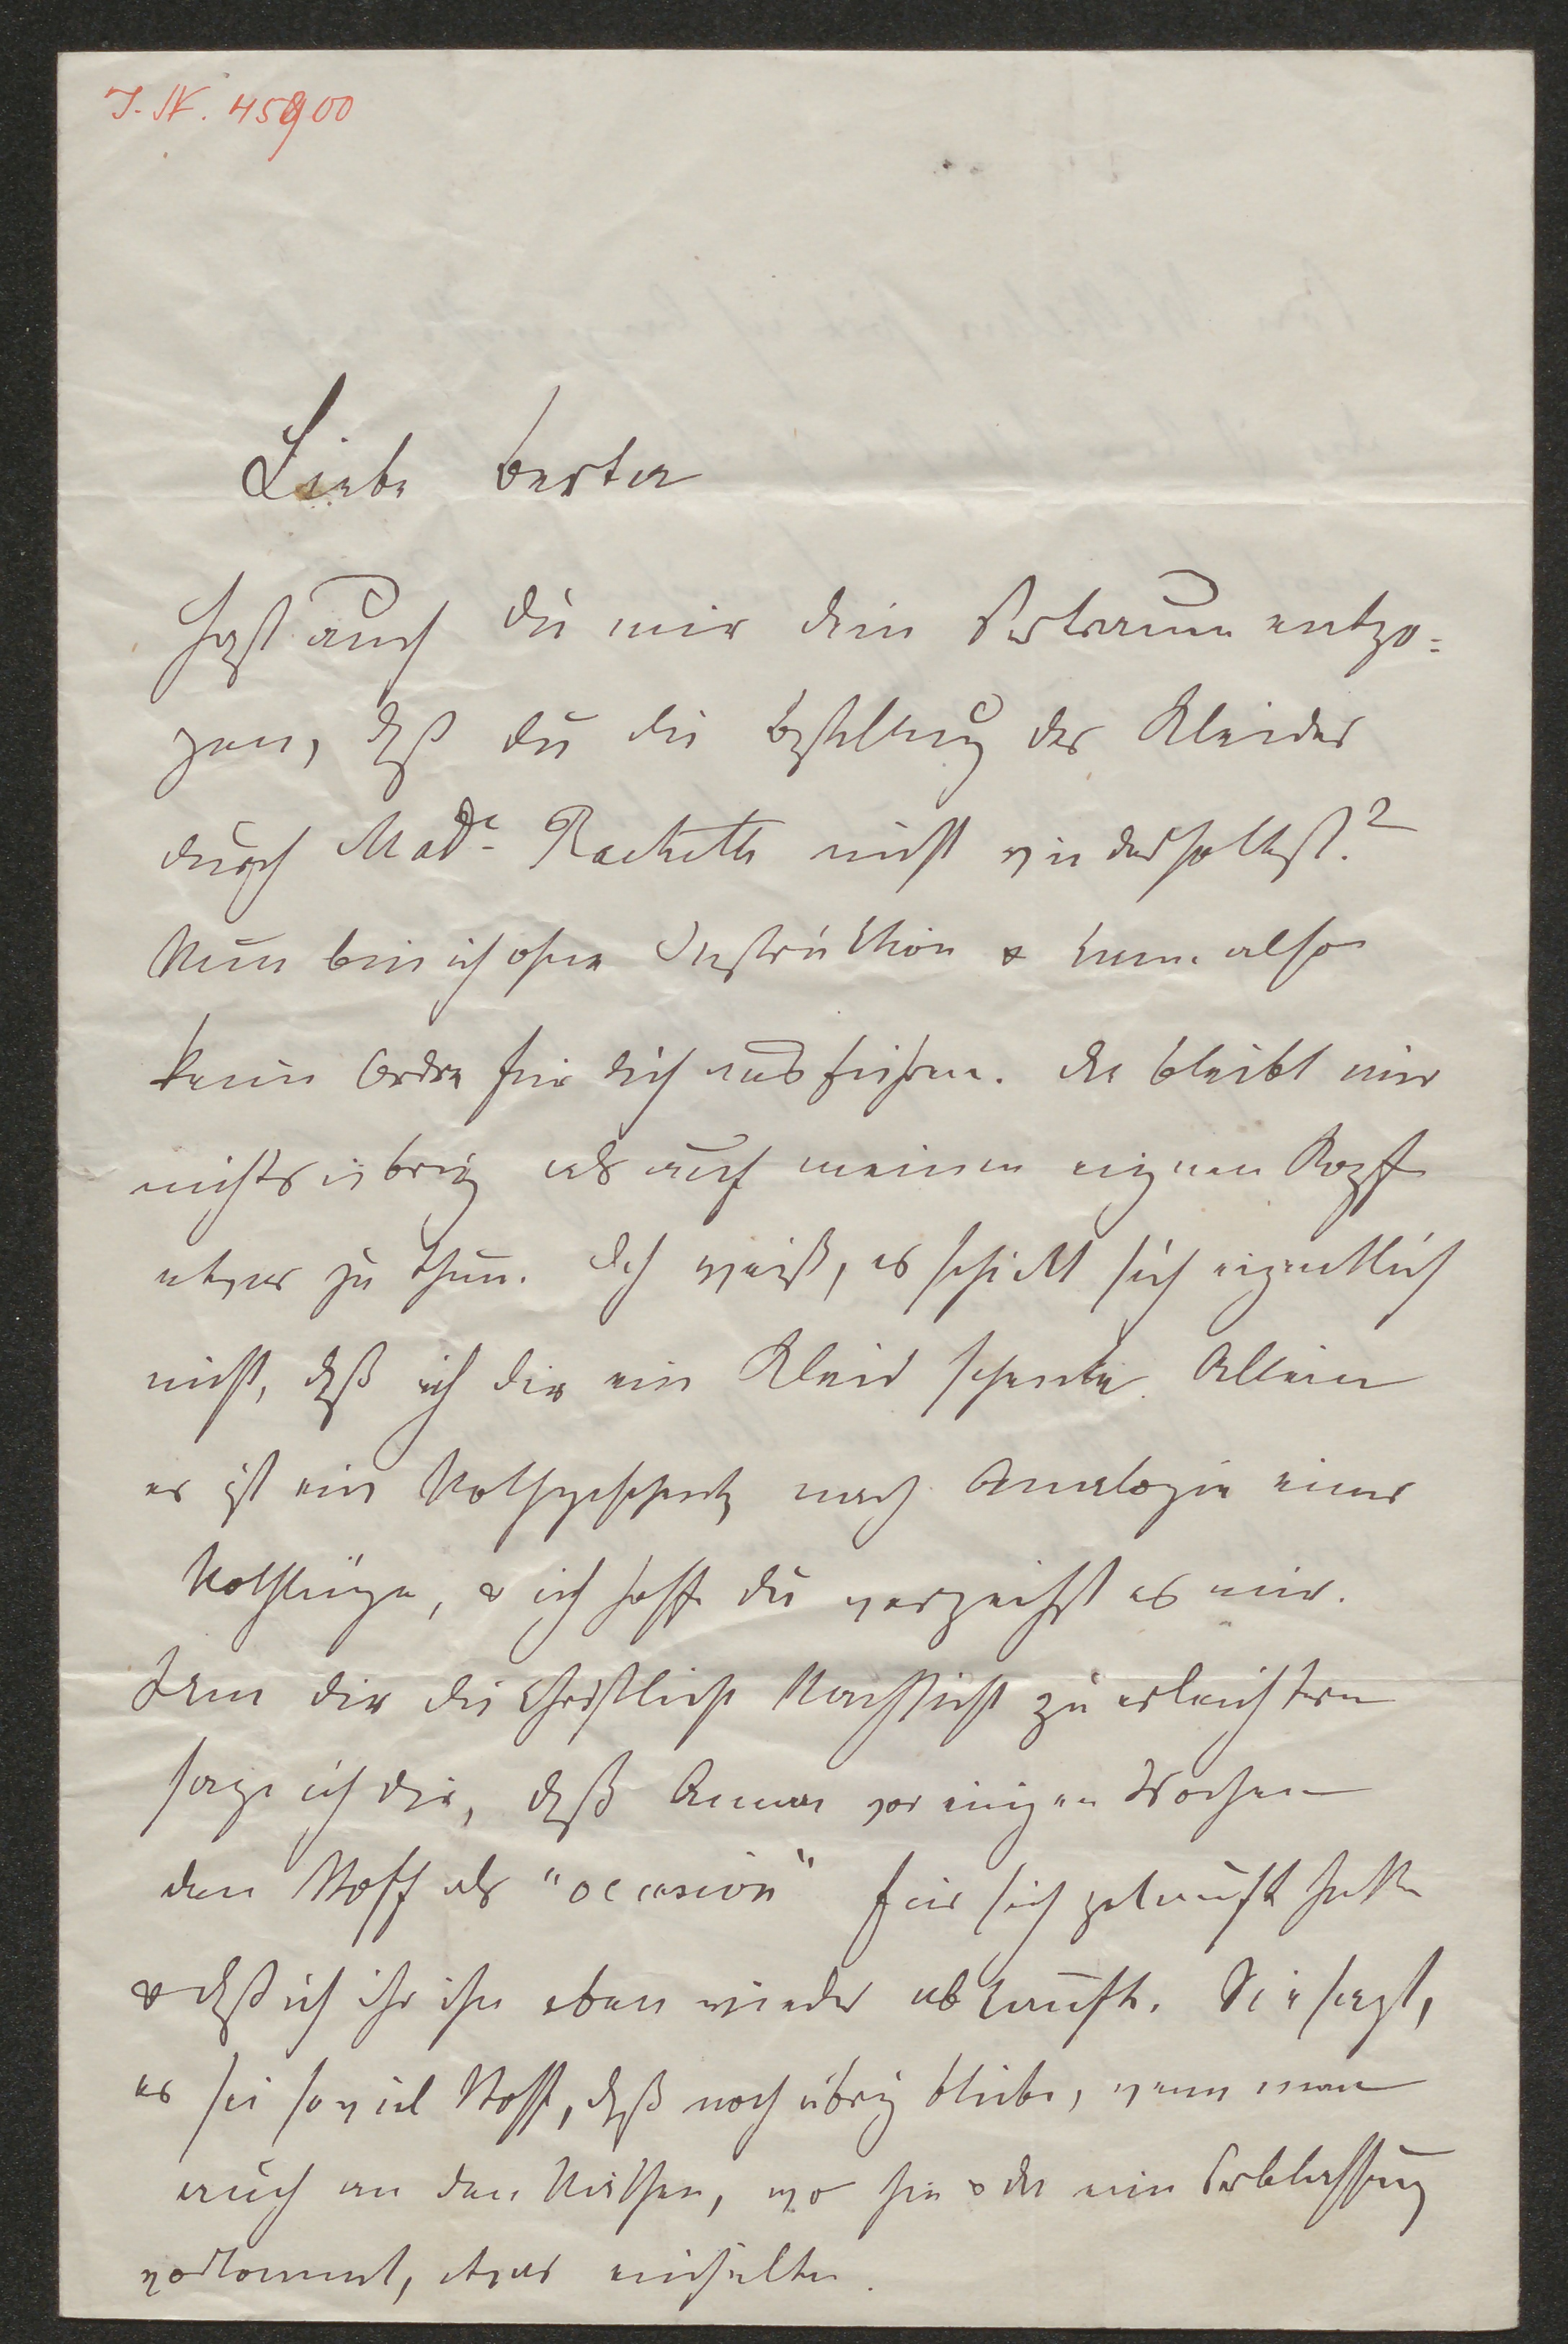 J. N. 45900
Liebe beste
Hast auch du mir dein Vertrauen entzo-
gen, daß du die Bestellung der Kleider
durch Mad. Rackette nicht wiederholtest?
Nun bin ich ohne Instruktion & kann also
kein Ordre für dich ausführen. Da bleibt mir
nichts übrig als auf meinen eignen Kopf
etwas zu thun. Ich weiß, es schickt sich eigentlich
nicht, daß ich dir ein Kleid schenke. Allein
es ist ein Nothgeschenk nach Analogie einer
Nothlüge, & ich hoffe du verzeihst es mir.
Um dir die christliche Nachsicht zu erleichtern
sage ich dir, daß Anna vor einigen Wochen
den Stoff als "occasion" für sich gekauft hatte
& daß ich ihr ihn eben wieder abkaufte. Sie sagt,
es sei soviel Stoff, daß noch übrig bliebe, wenn man
auch an den Näthen, wo hie & da eine Verblassung
vorkommt, etwas einhielte.